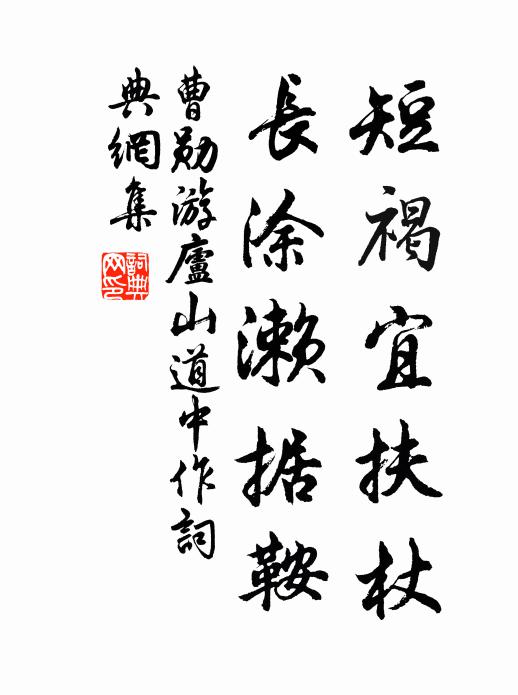 短褐宜扶杖
長涂濑据鞍
曹勋游廬山道中作詞
典網集
詞典
网印